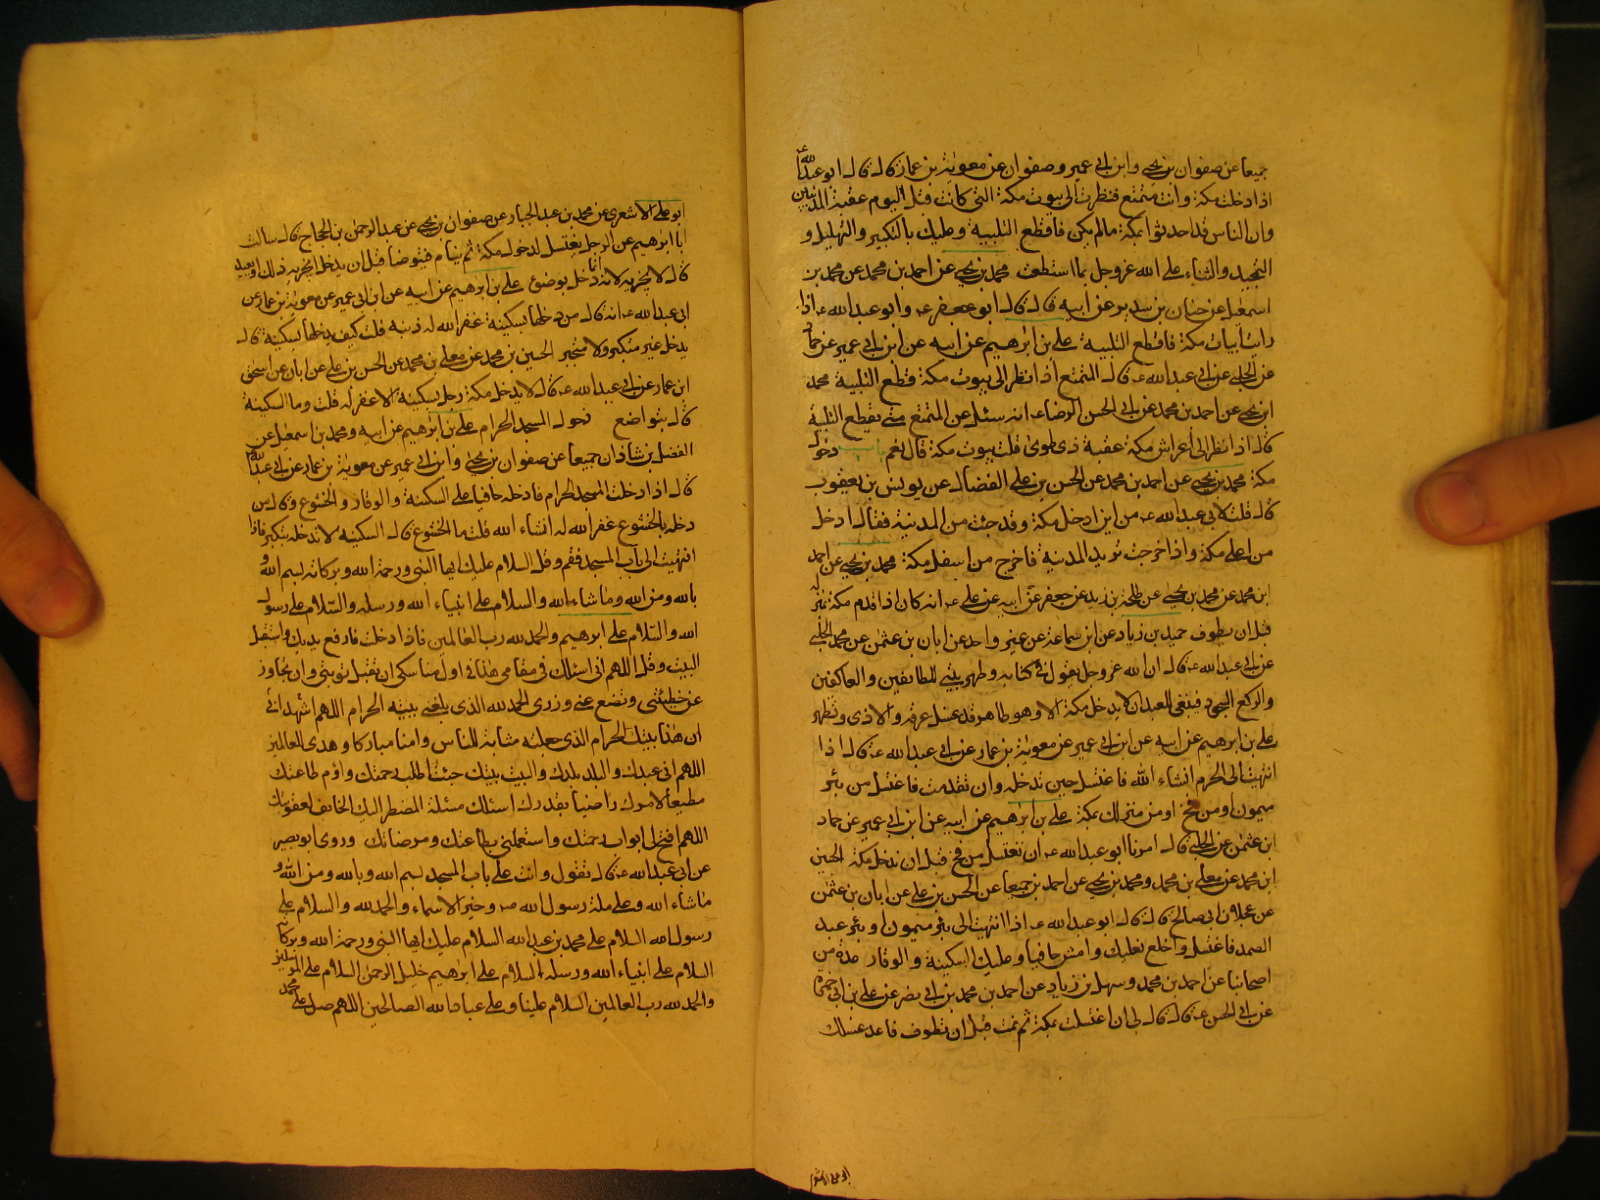 جميعا عن صفوان بن يحيى وابن ابي عمير وصفوان عن معوية بن عمار قال قال ابو عبد الله ع
اذا دخلت مكة وانت متمتع فنظرت الى بيوت مكة فاقطع التلبية وحد بيوت مكة التي كانت قبل اليوم عقبة المدنيين
وان الناس قد احدثوا بمكة مالم يكن فاقطع التلبية وعليك بالتكبير والتهليل و
التحميد والثناء على الله عز وجل بما استطعت محمد بن يحيى عن احمد بن محمد عن محمد بن
اسمعيل عن حنان بن سدير عن ابيه قال قال ابو جعفر ع وابو عبد الله ع اذا
رايت ابيات مكة فاقطع التلبية علي بن ابرهيم عن ابيه عن ابن ابي عمير عن حماد
عن الحلبي عن ابي عبد الله ع قال المتمتع اذا نظر الى بيوت مكة قطع التلبية محمد
ابن يحيى عن احمد بن محمد عن ابي الحسن الرضا ع انه سئل عن المتمتع متى يقطع التلبية
قال اذا نظر الى اعراش مكة عقبة ذي طوى قلت بيوت مكة قال نعم باب دخول
مكة محمد بن يحيى عن احمد بن محمد عن الحسن بن علي الفضال عن يونس بن يعقوب
قال قلت لابي عبد الله ع من اين ادخل مكة وقد جئت من المدينة فقال ادخل
من اعلى مكة واذا خرجت تريد المدينة فاخرج من اسفل مكة محمد بن يحيى عن احمد
ابن محمد عن محمد بن يحيى عن طلحة بن زيد عن جعفر عن ابيه عن علي ع انه كان اذا قدم مكة
قبل ان يطوف حميد بن زياد عن ابن سماعة عن غير واحد عن ابان بن عثمن عن محمد الحلبي
عن ابي عبد الله ع قال ان الله عز وجل يقول في كتابه وطهر بيتي للطايفين والعاكفين
والركع السجود فينبغي للعبد ان لا يدخل مكة الا وهو طاهر قد غسل عرقه والاذى وتطهر
علي بن ابرهيم عن ابيه عن ابن ابي عمير عن معوية بن عمار عن ابي عبد الله ع قال اذا
انتهيت الى الحرم انشاء الله فاغتسل حين تدخله وان تقدمت فاغتسل من بئر
ميمون او من فخ او من منزلك بمكة علي بن ابرهيم عن ابيه عن ابن ابي عمير عن حماد
ابن عثمن عن الحلبي قال امرنا ابو عبد الله ع ان نغتسل من فخ قبل ان ندخل مكة الحسين
ابن محمد عن معلى بن محمد ومحمد بن يحيى عن احمد بن جميعا عن الحسن بن علي عن ابان بن عثمن
عن عجلان ابي صالح قال قال ابو عبد الله ع اذا انتهيت الى بئر ميمون او بئر عبد
الصمد فاغتسل واخلع نعليك وامش حافيا وعليك السكينة والوقار عدة من
اصحابنا عن احمد بن محمد وسهل بن زياد عن احمد بن محمد بن ابي نصر عن علي بن ابي حمزة
عن ابي الحسن ع قال قال لي ان اغتسلت بمكة ثم نمت قبل ان تطوف فاعد غسلك
ابو علي الاشعري عن محمد بن عبد الجبار عن صفوان بن يحيى عن عبد الرحمن بن الحجاج قال سالت
ابا ابرهيم عن الرجل يغتسل لدخول مكة ثم ينام فيتوضا قبل ان يدخل ايجزيه ذلك او يعيد
قال لا يجزيه لانه انما دخل بوضوء علي بن ابرهيم عن ابيه عن ابن ابي عمير عن معوية بن عمار عن
ابي عبد الله ع انه قال من دخلها بسكينة غفر الله له ذنبه قلت كيف يدخلها بسكينة قال
يدخل غير متكبر ولا متجبر الحسين بن محمد عن معلى بن محمد عن الحسن بن علي عن ابان عن اسحق
ابن عمار عن ابي عبد الله ع قال لا يدخل مكة رجل بسكينة الا غفر له قلت وما السكينة
قال يتواضع دخول المسجد الحرام علي بن ابرهيم عن ابيه ومحمد بن اسمعيل عن
الفضل بن شاذان جميعا عن صفوان بن يحيى وابن ابي عمير عن معوية بن عمار عن ابي عبد الله
قال اذا دخلت المسجد الحرام فادخله حافيا على السكينة والوقار والخشوع وقال من
دخله بالخشوع غفر الله له انشاء الله قلت ما الخشوع قال السكينة لا تدخله بتكبر فاذا
انتهيت الى باب المسجد فقم وقل السلام عليك ايها النبي ورحمة الله وبركاته بسم الله و
بالله ومن الله وما شاء الله والسلام على انبياء الله ورسله والسلام على رسول
الله والسلام على ابرهيم والحمد لله رب العالمين فاذا دخلت فارفع يديك واستقبل
البيت وقل اللهم اني اسئلك في مقامي هذا في اول مناسكي ان تقبل توبتي وان تجاوز
عن خطيئتي وتضع عني وزري الحمد لله الذي بلغني بيته الحرام اللهم اشهد اني
ان هذا بيتك الحرام الذي جعلته مثابة للناس وامنا مباركا وهدى للعالمين
اللهم اني عبدك والبلد بلدك والبيت بيتك جئت اطلب رحمتك واؤم طاعتك
مطيعا لامرك راضيا بقدرك اسئلك مسئلة المضطر اليك الخائف لعقوبتك
اللهم افتح لي ابواب رحمتك واستعملني بطاعتك ومرضاتك وروى ابو بصير
عن ابي عبد الله ع قال تقول وانت على باب المسجد بسم الله وبالله ومن الله و
ماشاء الله وعلى ملة رسول الله صه وخير الاسماء والحمد لله والسلام على
رسول الله السلام على محمد بن عبد الله السلام عليك ايها النبي ورحمة الله وبركاته
السلام على انبياء الله ورسله السلام على ابرهيم خليل الرحمن السلام على المرسلين
والحمد لله رب العالمين السلام علينا وعلى عباد الله الصالحين اللهم صل على محمد
ابو علي الاشعر